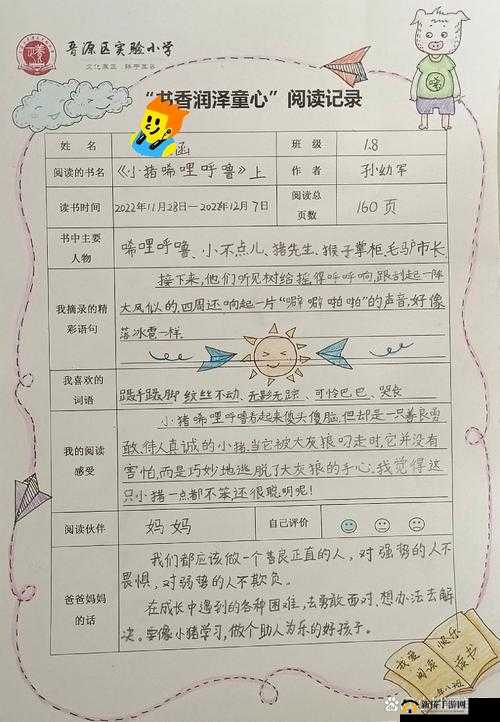 晋源区实验小学
“书香润泽童心”阅读记录
姓 名 涵 班 级 1.8
阅读的书名 《小猪唏哩呼噜》上 作 者 孙幼军
读书时间 2022年11月28日—2022年12月7日 阅读总页数 160页
书中主要人物 唏哩呼噜、小不点儿、猪先生、猴子掌柜、毛驴市长
我摘录的精彩语句
接下来,他们听见树给摇得呼呼响,跟刮起一阵
大风似的,四周还响起一片“噼噼啪啪”的声音,好像
落冰雹一样。
我喜欢的词语 蹑手蹑脚 纹丝不动、无影无踪、可怜巴巴、哭丧
我的阅读感受
小猪唏哩呼噜看起来傻头傻脑,但却是一只善良勇
敢、待人真诚的小猪,当它被大灰狼叼走时,它并没有
害怕,而是巧妙地逃脱了大灰狼的手心。我觉得这
只小猪一点都不笨还很聪明呢!
阅读伙伴 妈妈 自己评价
爸爸妈妈的话
我们都应该做一个善良正直的人,对强势的人不
畏惧,对弱势的人不欺负。
在成长中遇到的各种困难,去勇敢面对,想办法去解
决。要像小猪学习,做个助人为乐的好孩子。
我爱阅读
快乐读书
一年八班